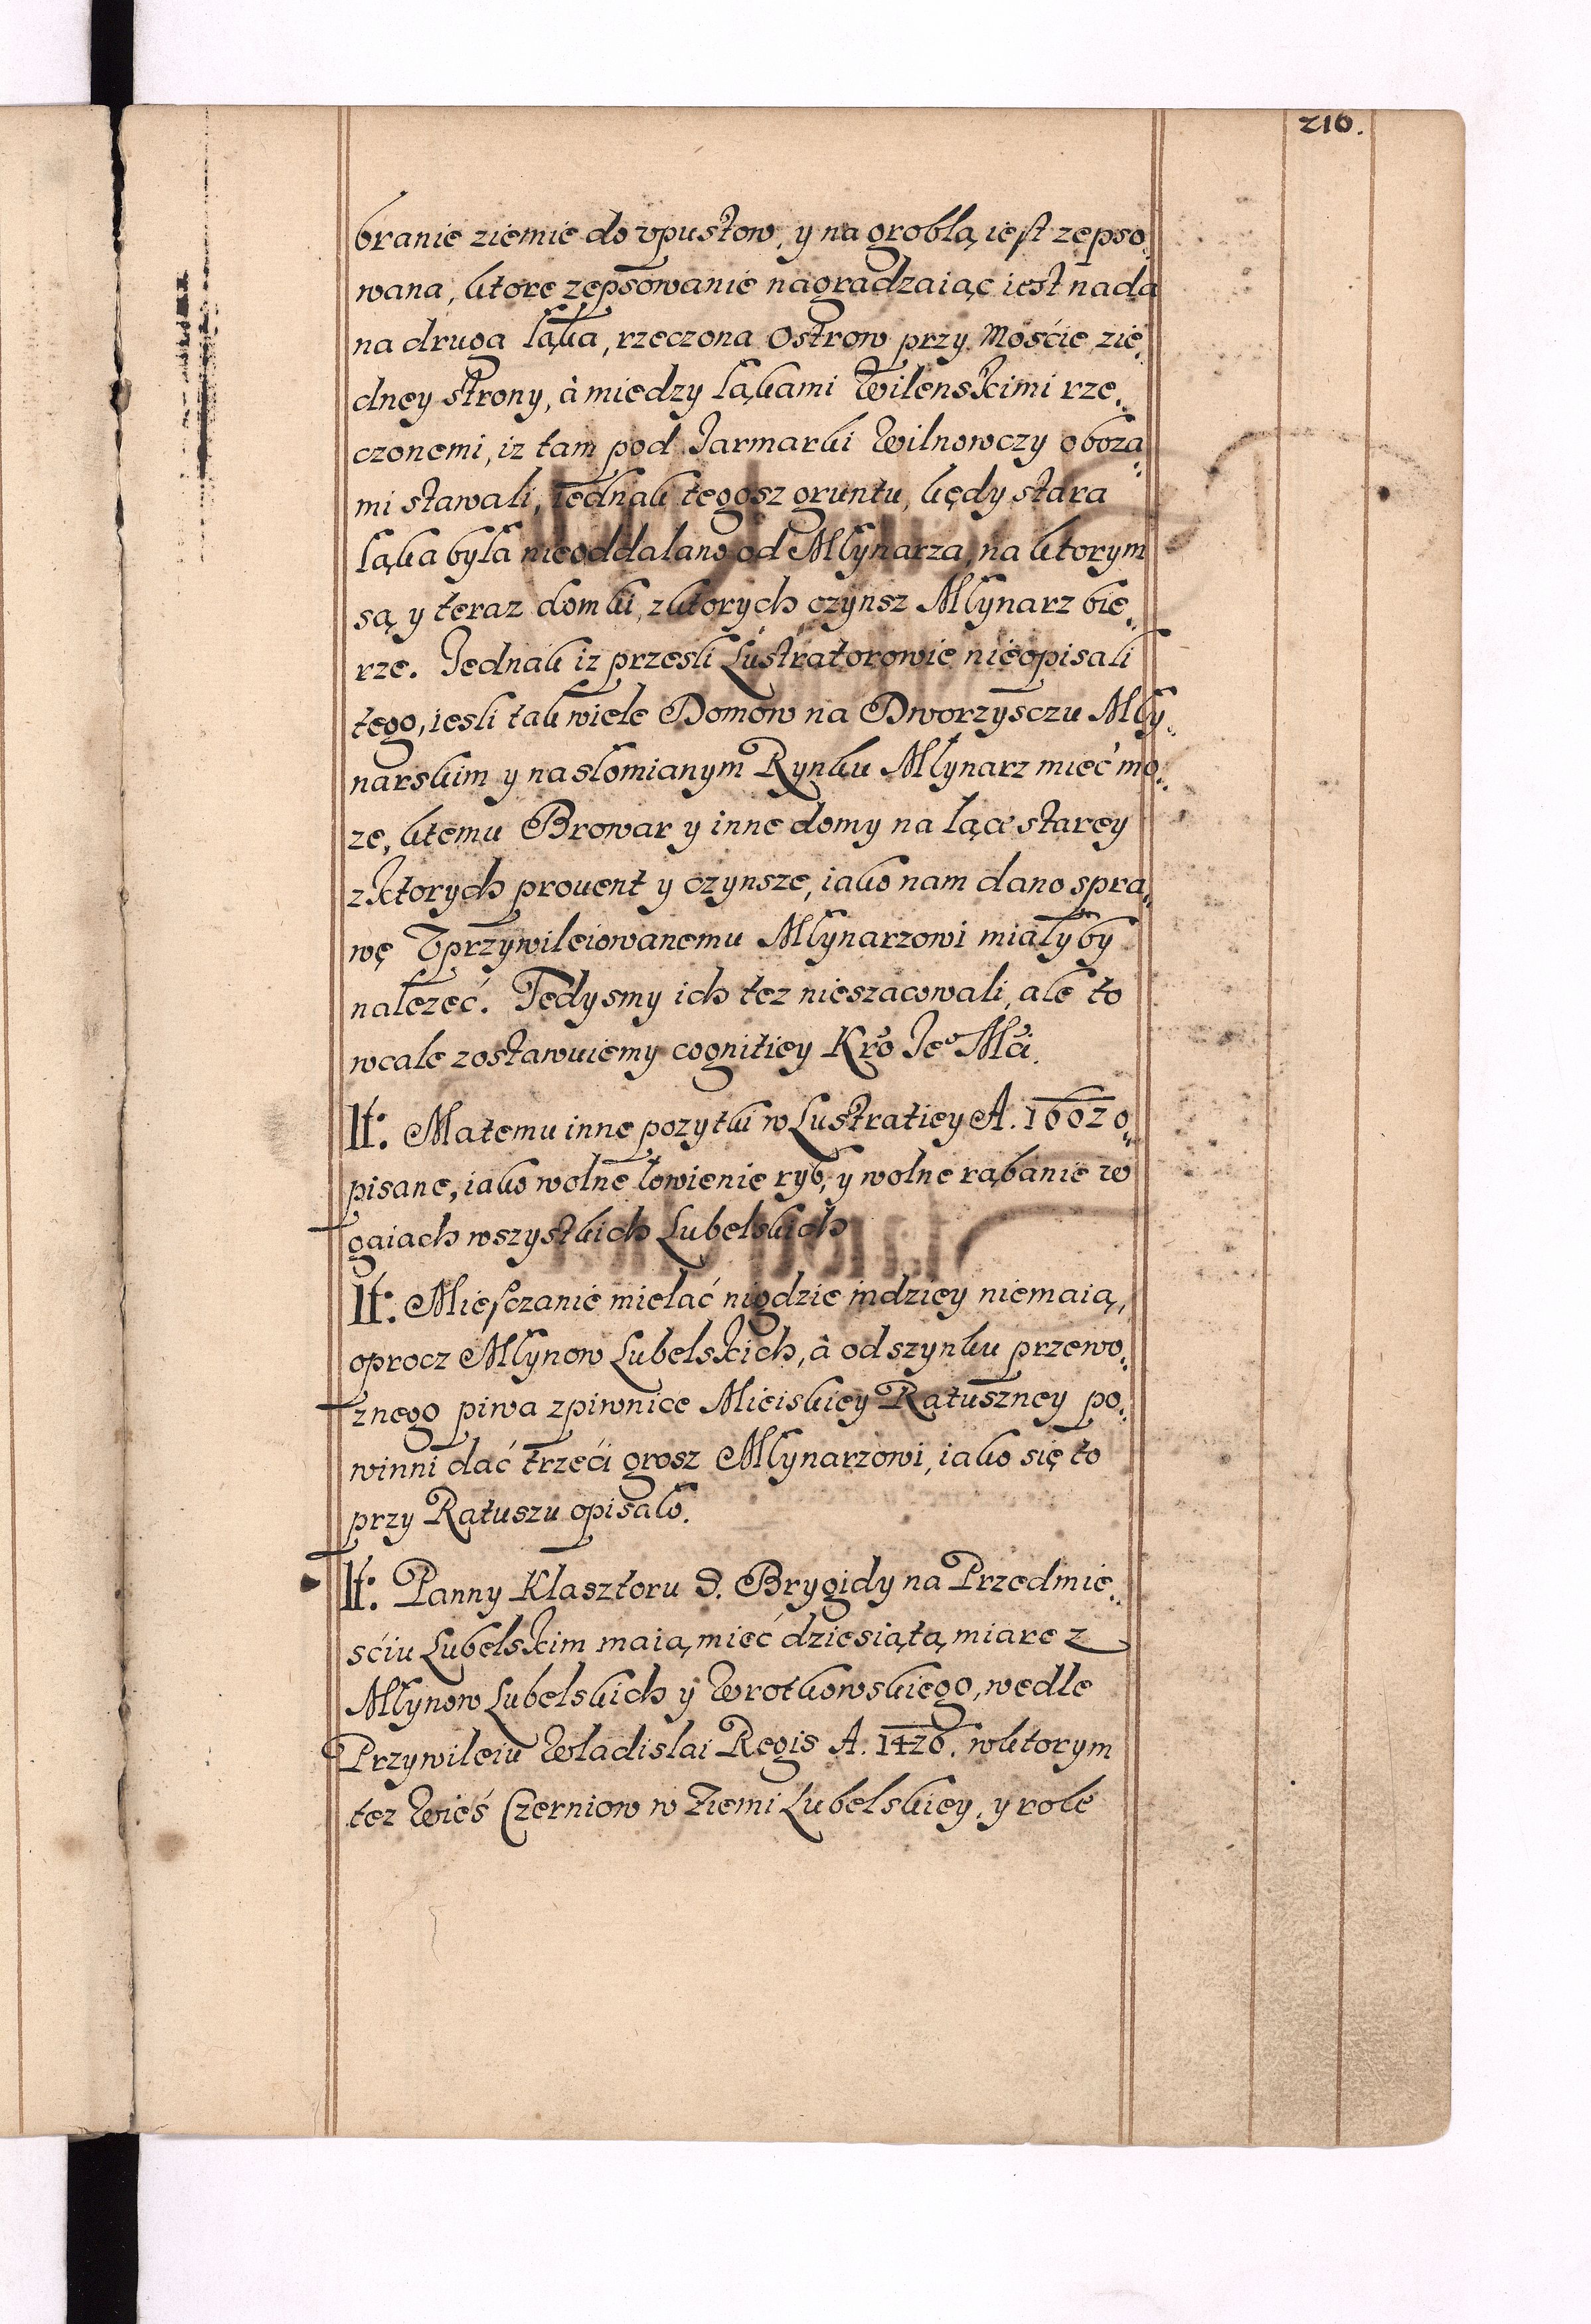 216.
branie ziemie do vpustow, y na groblą iest zepso„
wana, ktore zepsowanie nagradzaiąc iest nada
na druga łąka, rzeczona Ostrow przy Mościе zie„
dney strony, à miedzy łąkami Wilenskimi rze„
czonemi, iz tam pod Jarmarki Wilnowczy oboza„
mi stawali, iednak tegosz gruntu, kędy stara
łąka była nieoddalano od Młynarza, na ktorym
są y teraz domki, zktorych czynsz Młynarz bie„
rze. Jednak iz przesli Lustratorowie nieopisali
tego, iesli tak wiele Domow na Dworzysczu Mły„
narskim y na słomianym Rynku Młynarz mieć mo„
ze, ktemu Browar y inne domy na łące starey
zktorych prouent y czynsze, iako nam dano spra„
wę Vprzywileiowanemu Młynarzowi miałyby
nalezeć. Tedysmy ich tez nieszacowali, ale to
wcale zostawuiemy cognitiey Kro Jeo Mći.
It: Ma temu inne pozytki w Lustratiey A. 1602 o„
pisane, iako wolne łowienie ryb, y wolne rąbanie w
gaiach wszystkich Lubelskich
It: Miesczanie mielać nigdzie indziey niemaią,
oprocz Młynow Lubelskich, à od szynku przewo„
znego piwa zpiwnice Mieiskiey Ratuszney po„
winni dać trzeći grosz Młynarzowi, iako się to
przy Ratuszu opisało.
It: Panny Klasztoru S. Brygidy na Przedmie„
sćiu Lubelskim maią mieć dziesiątą miare z
Młynow Lubelskich y Wrotkowskiego, wedle
Przywileiu Wladislai Regis A. 1426. wktorym
tez Wieś Czerniow w Ziemi Lubelskiey, y role